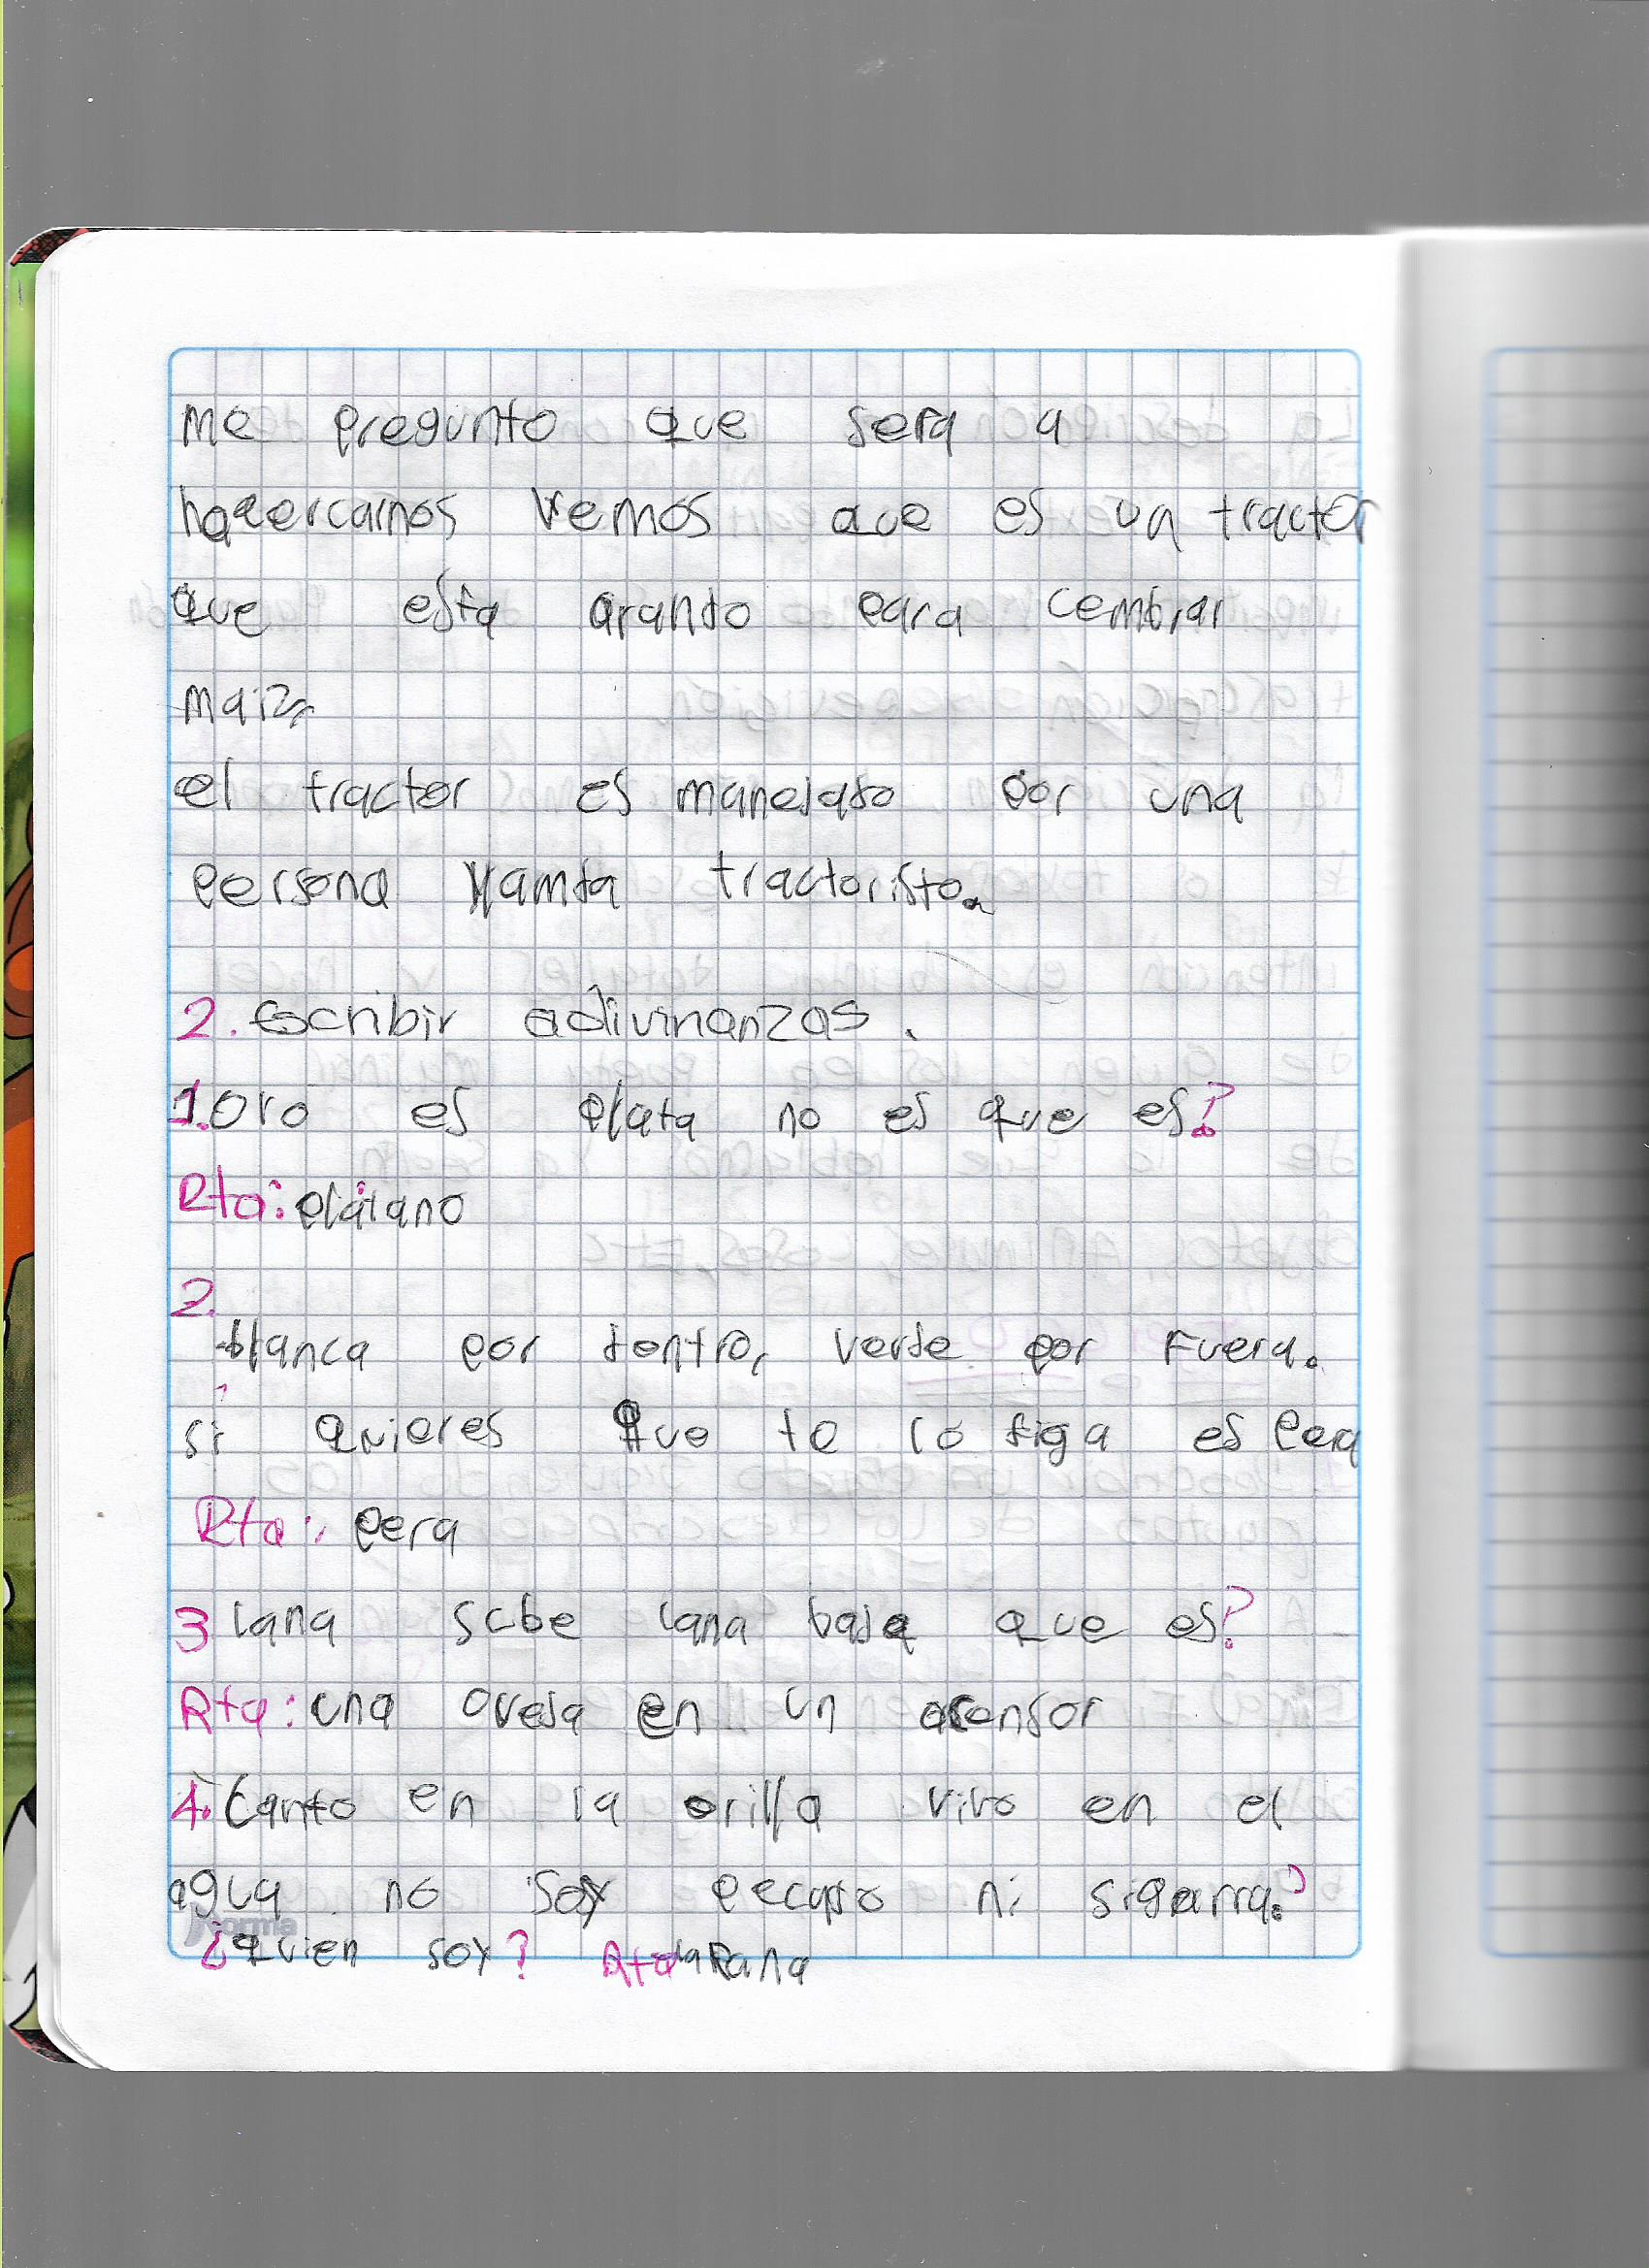 me pregunto que sera a
hacercarnos vemos que es un tractor
que esta arando para cembrar
maiz,
el tractor es manejado por una
persona yamda tractoristo.
2. Escribir adivinanzas.
1. Oro es plata no es que es?
Rta: platano
2.
blanca por dentro, verde por Fuera.
si quieres que te lo diga es Pera
Rta: pera
3 lana sube lana baja que es?
Rta: una oveja en un acensor
4. Canto en la orilla vivo en el
agua no soy pecado ni sigarra?
Norma
¿quien soy? Rta la Rana